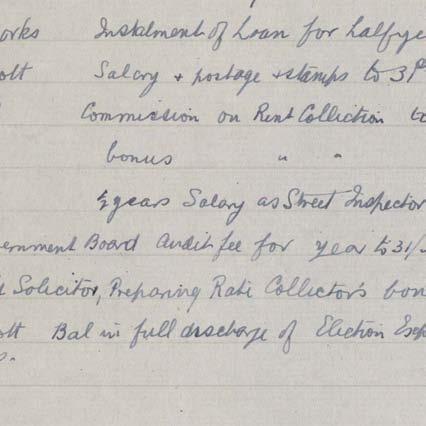 orks Instalment of Loan for halfye
ott Salary + postage + stamps to 31
Commission on Rent Collection to
bonus " "
½ years Salary as Street Inspector
ernment Board audit fee for year to 31/
Solicitor, Preparing Rate Collector's bon
ott Bal in full discharge of Election Exp